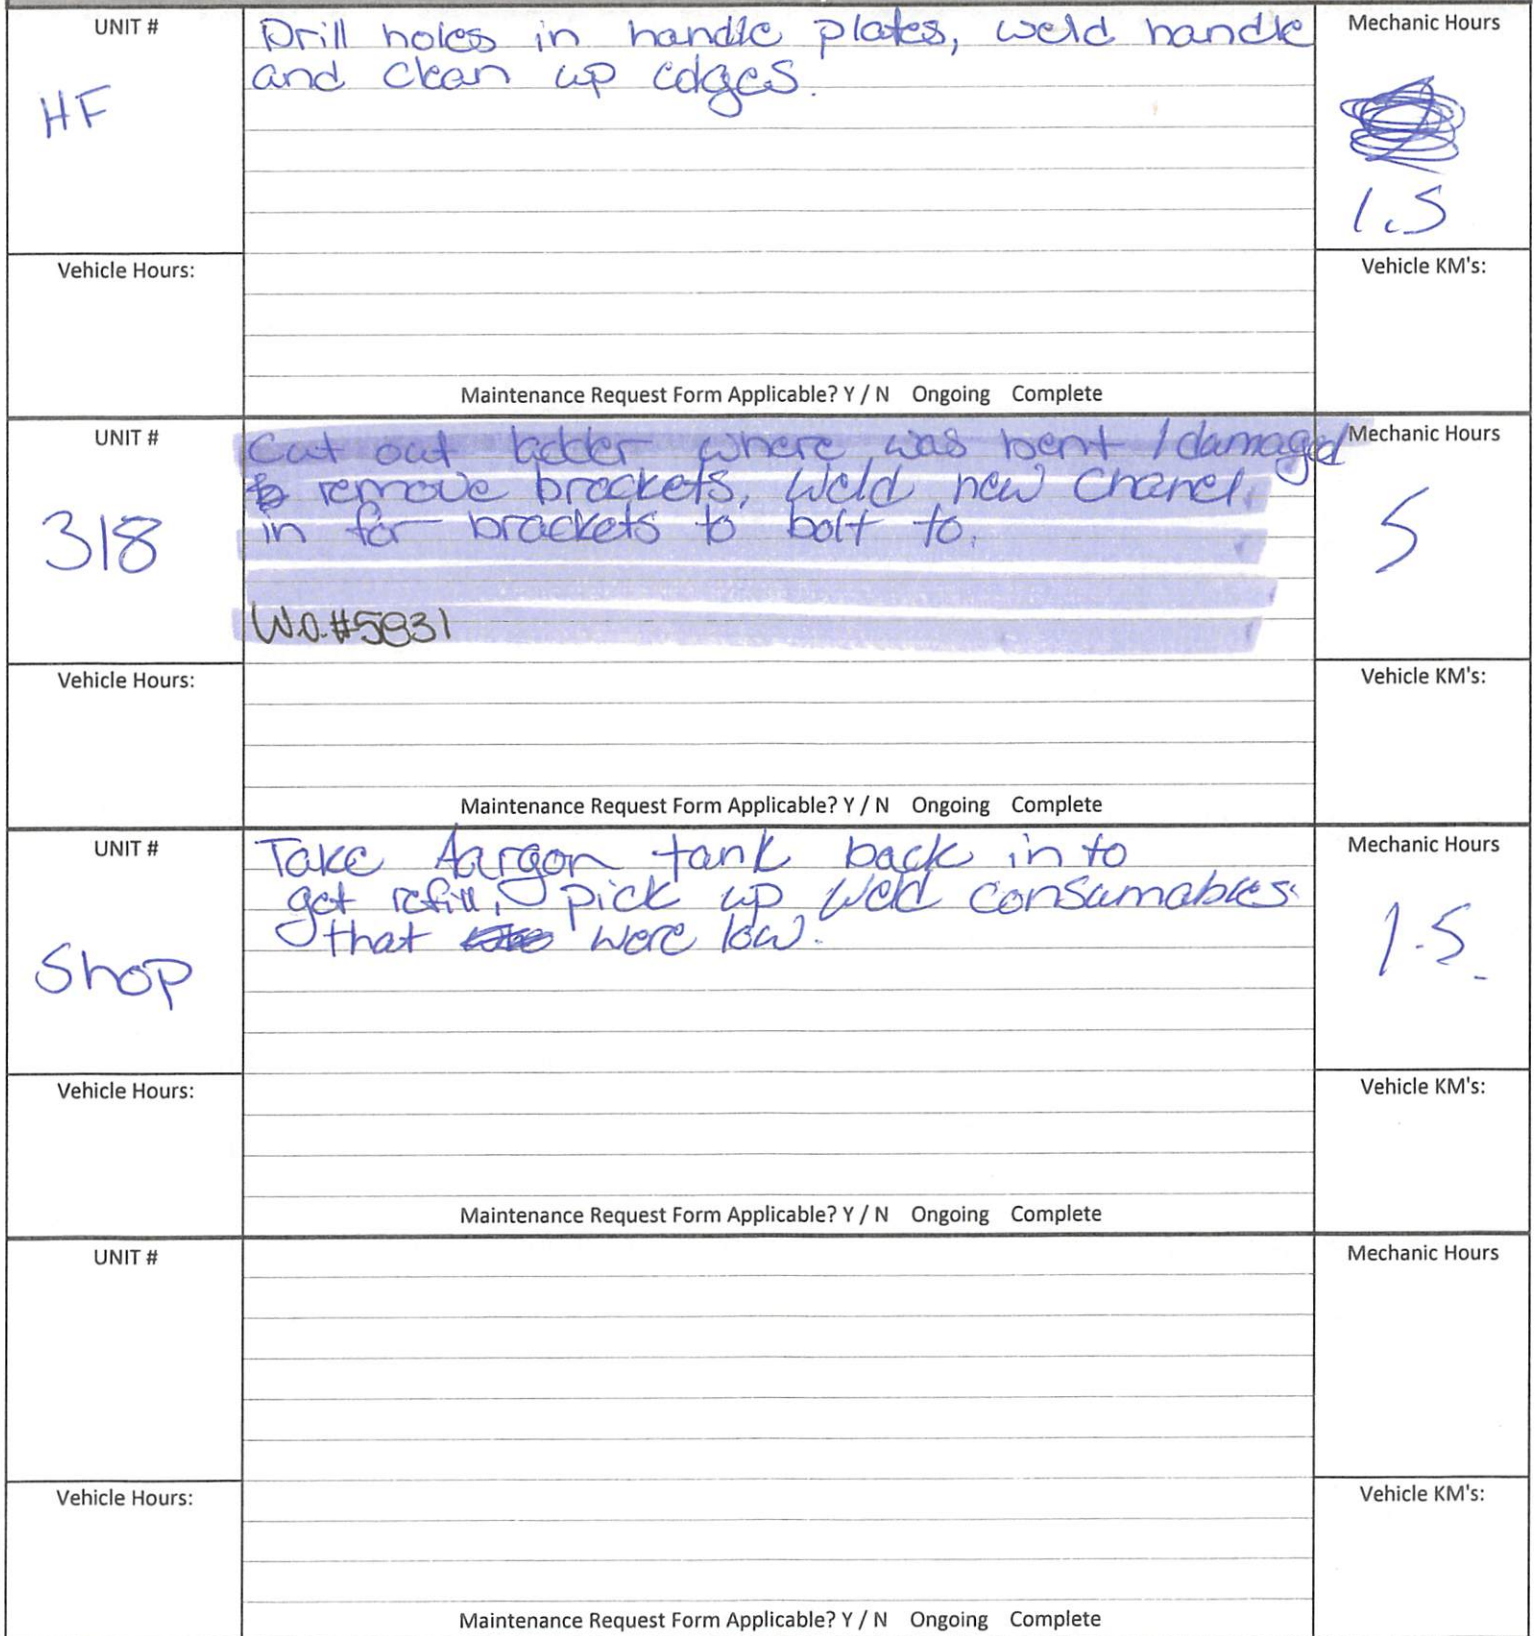 UNIT #
Drill holes in handle plates, weld handle
Mechanic Hours
and clean up edges.
HF
1.5
Vehicle Hours:
Vehicle KM's:
Maintenance Request Form Applicable? Y / N Ongoing Complete
UNIT #
Cut out ladder where was bent / damaged
Mechanic Hours
remove brackets, weld new Chanel
in for brackets to bolt to.
318
5
W.O.#5831
Vehicle Hours:
Vehicle KM's:
Maintenance Request Form Applicable? Y / N Ongoing Complete
UNIT #
Take Aargon tank back in to
Mechanic Hours
get refill, pick up weld consumables
that were low.
Shop
1.5
Vehicle Hours:
Vehicle KM's:
Maintenance Request Form Applicable? Y / N Ongoing Complete
UNIT #
Mechanic Hours
Vehicle Hours:
Vehicle KM's:
Maintenance Request Form Applicable? Y / N Ongoing Complete